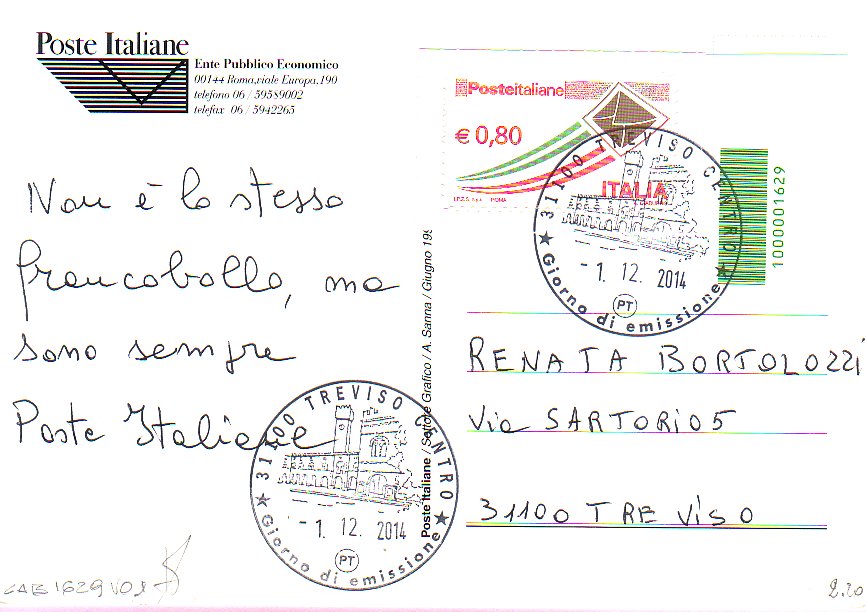 Poste Italiane
Ente Pubblico Economico
00144 Roma,viale Europa,190
telefono 06 / 59589002
telefax 06 / 5942265
Non è lo stesso
francobollo, ma
sono sempre
Poste Italiane
Poste Italiane / Settore Grafico / A. Sanna / Giugno 199
Posteitaliane
€ 0,80
ITALIA
I.P.Z.S. S.p.A. ROMA
1000001629
31100 TREVISO CENTRO
- 1. 12. 2014
PT
Giorno di emissione
RENATA BORTOLOZZI
Via SARTORIO 5
31100 TREVISO
31100 TREVISO CENTRO
- 1. 12. 2014
PT
Giorno di emissione
2.20